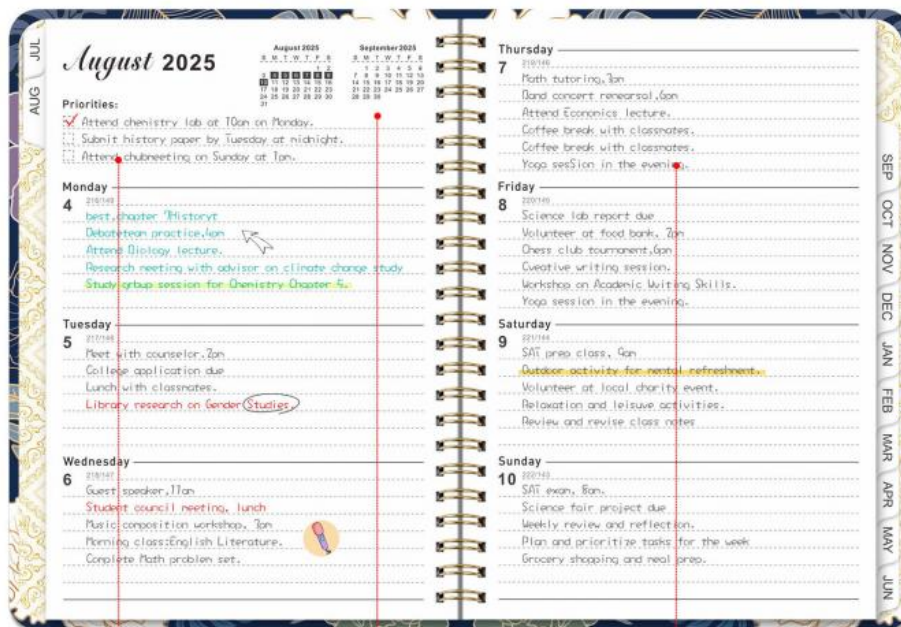 August 2025
August 2025
S M T W T F S
1 2
3 4 5 6 7 8 9
10 11 12 13 14 15 16
17 18 19 20 21 22 23
24 25 26 27 28 29 30
31
September 2025
S M T W T F S
1 2 3 4 5 6
7 8 9 10 11 12 13
14 15 16 17 18 19 20
21 22 23 24 25 26 27
28 29 30
Priorities:
Attend chemistry lab at 10am on Monday.
Submit history paper by Tuesday at midnight.
Attend chubneeting on Sunday at 1pm.
Monday
4
216/149
best,chapter 7Historyt
Debateteam practice,4pm
Attend Biology lecture.
Research meeting with advisor on climate change study
Study grbup session for Chemistry Chapter 5.
Tuesday
5
217/148
Meet with counselor,2pm
College application due
Lunch with classmates.
Library research on Gender Studies.
Wednesday
6
218/147
Guest speaker,11am
Student council meeting, lunch
Music composition workshop, 3pm
Morning class:English Literature.
Complete Math problem set.
Thursday
7
219/146
Math tutoring,3pm
Band concert rehearsal,6pm
Attend Economics lecture.
Coffee break with classmates.
Coffee break with classmates.
Yoga sesSion in the evening.
Friday
8
220/145
Science lab report due
Volunteer at food bank, 2pm
Chess club tournament,6pm
Cveative writing session.
Workshop on Academic Wviting Skills.
Yoga session in the evening.
Saturday
9
221/144
SAT prep class, 9am
Outdoor activity for mental refreshment.
Volunteer at local charity event.
Relaxation and leisuve activities.
Review and revise class notes
Sunday
10
222/143
SAT exam, 8am.
Science fair project due
Weekly review and reflection.
Plan and prioritize tasks for the week
Grocery shopping and meal prep.
JUL
AUG
SEP
OCT
NOV
DEC
JAN
FEB
MAR
APR
MAY
JUN